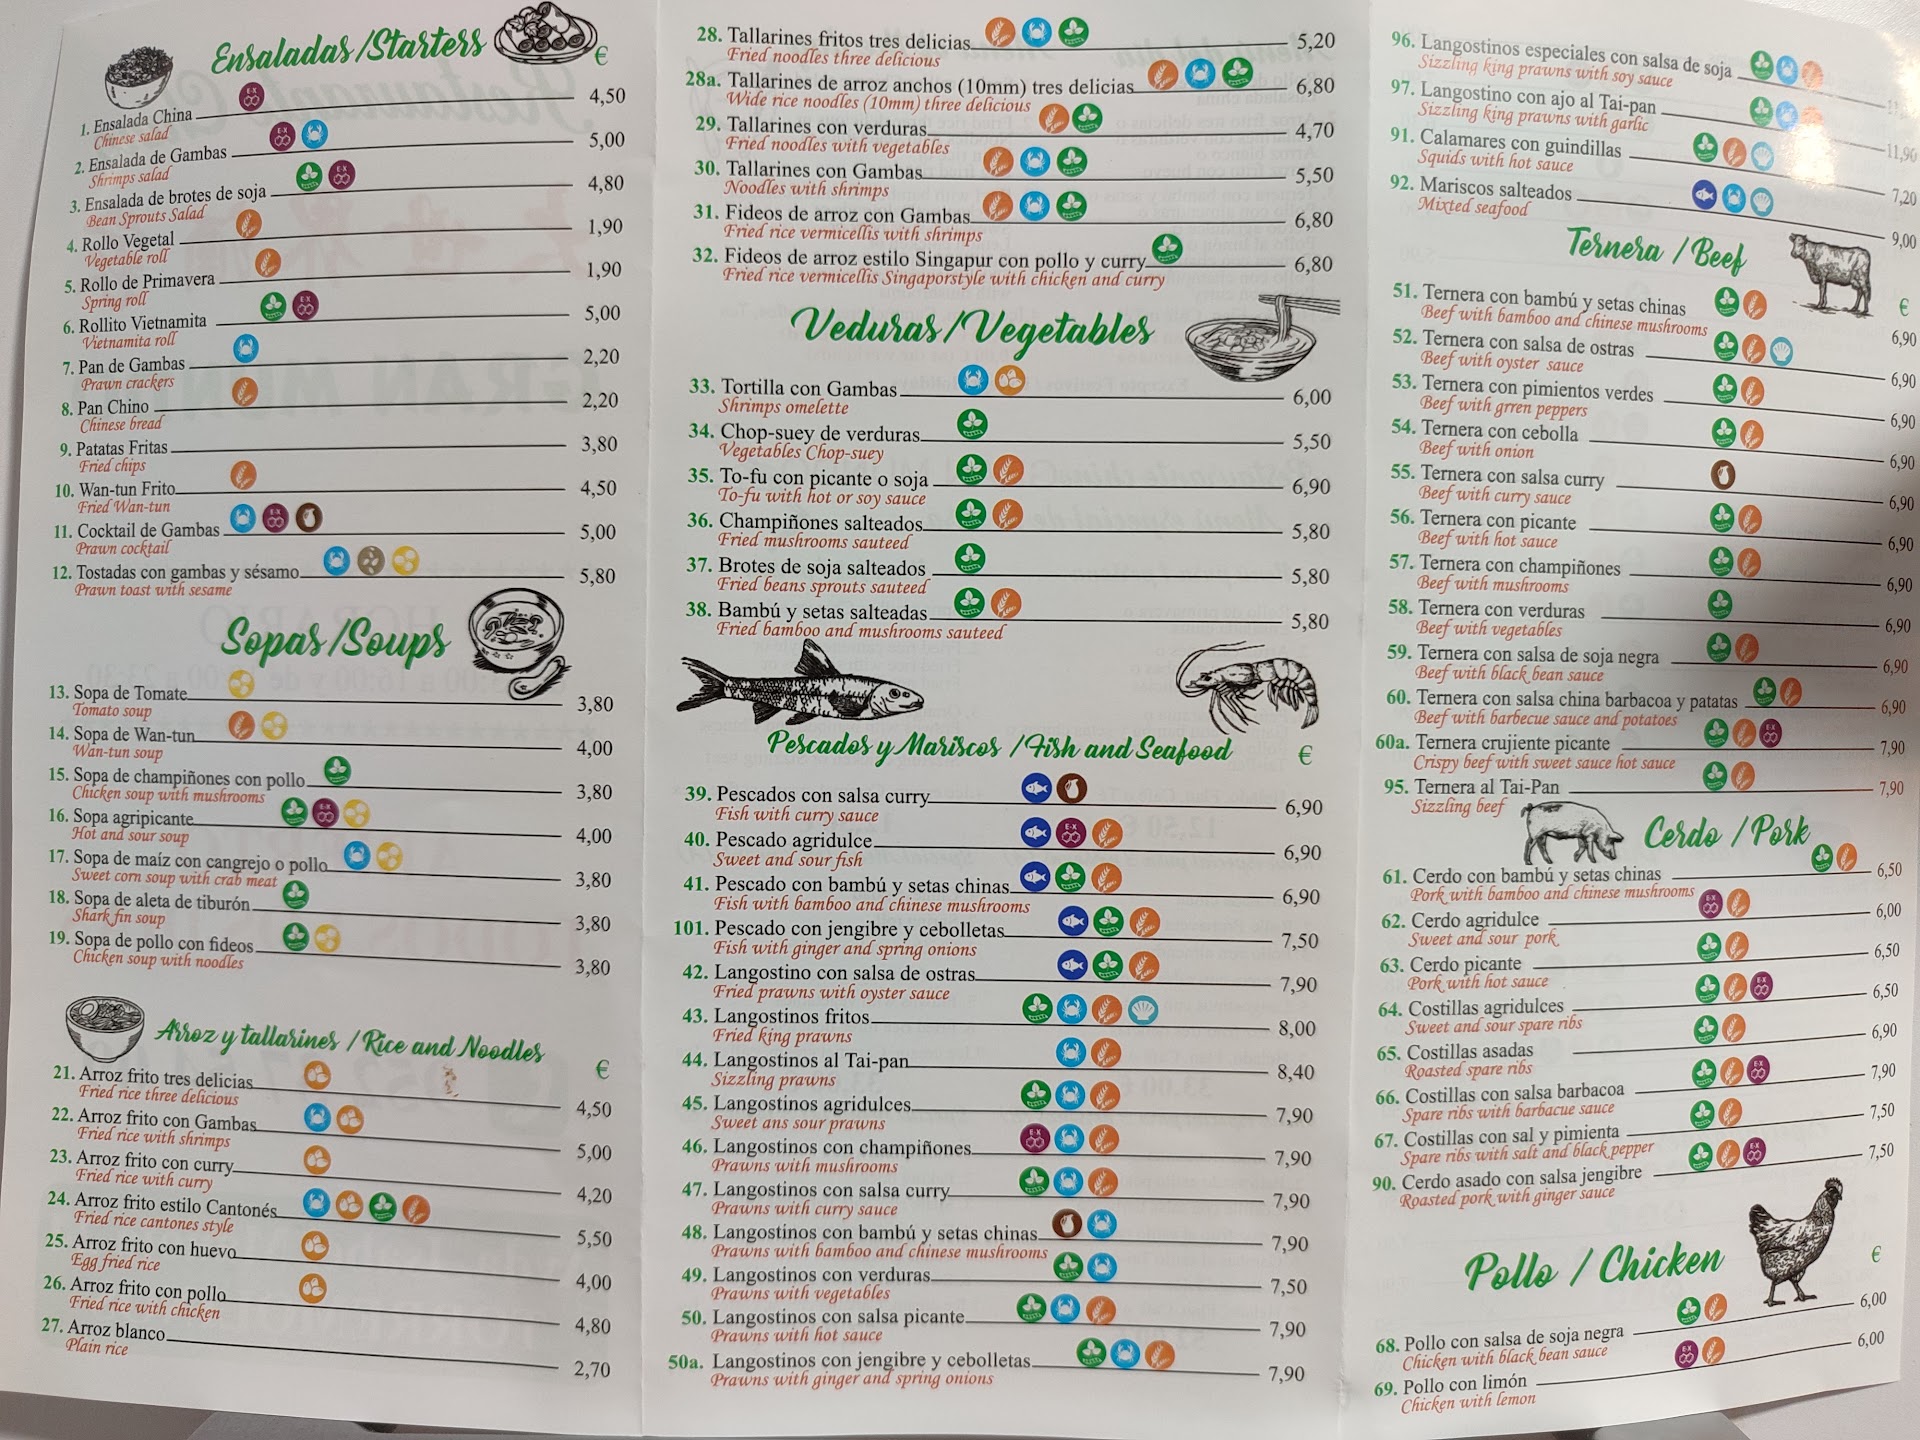 Ensaladas/Starters
€
1. Ensalada China 4,50
Chinese salad
2. Ensalada de Gambas 5,00
Shrimps salad
3. Ensalada de brotes de soja 4,80
Bean Sprouts Salad
4. Rollo Vegetal 1,90
Vegetable roll
5. Rollo de Primavera 1,90
Spring roll
6. Rollito Vietnamita 5,00
Vietnamita roll
7. Pan de Gambas 2,20
Prawn crackers
8. Pan Chino 2,20
Chinese bread
9. Patatas Fritas 3,80
Fried chips
10. Wan-tun Frito 4,50
Fried Wan-tun
11. Cocktail de Gambas 5,00
Prawn cocktail
12. Tostadas con gambas y sésamo 5,80
Prawn toast with sesame
Sopas/Soups
13. Sopa de Tomate 3,80
Tomato soup
14. Sopa de Wan-tun 4,00
Wan-tun soup
15. Sopa de champiñones con pollo 3,80
Chicken soup with mushrooms
16. Sopa agripicante 4,00
Hot and sour soup
17. Sopa de maíz con cangrejo o pollo 3,80
Sweet corn soup with crab meat
18. Sopa de aleta de tiburón 3,80
Shark fin soup
19. Sopa de pollo con fideos 3,80
Chicken soup with noodles
Arroz y tallarines / Rice and Noodles
€
21. Arroz frito tres delicias 4,50
Fried rice three delicious
22. Arroz frito con Gambas 5,00
Fried rice with shrimps
23. Arroz frito con curry 4,20
Fried rice with curry
24. Arroz frito estilo Cantonés 5,50
Fried rice cantones style
25. Arroz frito con huevo 4,00
Egg fried rice
26. Arroz frito con pollo 4,80
Fried rice with chicken
27. Arroz blanco 2,70
Plain rice
28. Tallarines fritos tres delicias 5,20
Fried noodles three delicious
28a. Tallarines de arroz anchos (10mm) tres delicias 6,80
Wide rice noodles (10mm) three delicious
29. Tallarines con verduras 4,70
Fried noodles with vegetables
30. Tallarines con Gambas 5,50
Noodles with shrimps
31. Fideos de arroz con Gambas 6,80
Fried rice vermicellis with shrimps
32. Fideos de arroz estilo Singapur con pollo y curry 6,80
Fried rice vermicellis Singaporstyle with chicken and curry
Veduras/Vegetables
33. Tortilla con Gambas 6,00
Shrimps omelette
34. Chop-suey de verduras 5,50
Vegetables Chop-suey
35. To-fu con picante o soja 6,90
To-fu with hot or soy sauce
36. Champiñones salteados 5,80
Fried mushrooms sauteed
37. Brotes de soja salteados 5,80
Fried beans sprouts sauteed
38. Bambú y setas salteadas 5,80
Fried bamboo and mushrooms sauteed
Pescados y Mariscos /Fish and Seafood
€
39. Pescados con salsa curry 6,90
Fish with curry sauce
40. Pescado agridulce 6,90
Sweet and sour fish
41. Pescado con bambú y setas chinas 6,90
Fish with bamboo and chinese mushrooms
101. Pescado con jengibre y cebolletas 7,50
Fish with ginger and spring onions
42. Langostino con salsa de ostras 7,90
Fried prawns with oyster sauce
43. Langostinos fritos 8,00
Fried king prawns
44. Langostinos al Tai-pan 8,40
Sizzling prawns
45. Langostinos agridulces 7,90
Sweet ans sour prawns
46. Langostinos con champiñones 7,90
Prawns with mushrooms
47. Langostinos con salsa curry 7,90
Prawns with curry sauce
48. Langostinos con bambú y setas chinas 7,90
Prawns with bamboo and chinese mushrooms
49. Langostinos con verduras 7,50
Prawns with vegetables
50. Langostinos con salsa picante 7,90
Prawns with hot sauce
50a. Langostinos con jengibre y cebolletas 7,90
Prawns with ginger and spring onions
96. Langostinos especiales con salsa de soja
Sizzling king prawns with soy sauce
97. Langostino con ajo al Tai-pan 11,90
Sizzling king prawns with garlic
91. Calamares con guindillas 7,20
Squids with hot sauce
92. Mariscos salteados 9,00
Mixted seafood
Ternera / Beef
€
51. Ternera con bambú y setas chinas 6,90
Beef with bamboo and chinese mushrooms
52. Ternera con salsa de ostras 6,90
Beef with oyster sauce
53. Ternera con pimientos verdes 6,90
Beef with grren peppers
54. Ternera con cebolla 6,90
Beef with onion
55. Ternera con salsa curry 6,90
Beef with curry sauce
56. Ternera con picante 6,90
Beef with hot sauce
57. Ternera con champiñones 6,90
Beef with mushrooms
58. Ternera con verduras 6,90
Beef with vegetables
59. Ternera con salsa de soja negra 6,90
Beef with black bean sauce
60. Ternera con salsa china barbacoa y patatas 6,90
Beef with barbecue sauce and potatoes
60a. Ternera crujiente picante 7,90
Crispy beef with sweet sauce hot sauce
95. Ternera al Tai-Pan 7,90
Sizzling beef
Cerdo / Pork
61. Cerdo con bambú y setas chinas 6,50
Pork with bamboo and chinese mushrooms
62. Cerdo agridulce 6,00
Sweet and sour pork
63. Cerdo picante 6,50
Pork with hot sauce
64. Costillas agridulces 6,50
Sweet and sour spare ribs
65. Costillas asadas 6,90
Roasted spare ribs
66. Costillas con salsa barbacoa 7,90
Spare ribs with barbacue sauce
67. Costillas con sal y pimienta 7,50
Spare ribs with salt and black pepper
90. Cerdo asado con salsa jengibre 7,50
Roasted pork with ginger sauce
Pollo / Chicken
€
68. Pollo con salsa de soja negra 6,00
Chicken with black bean sauce
69. Pollo con limón 6,00
Chicken with lemon